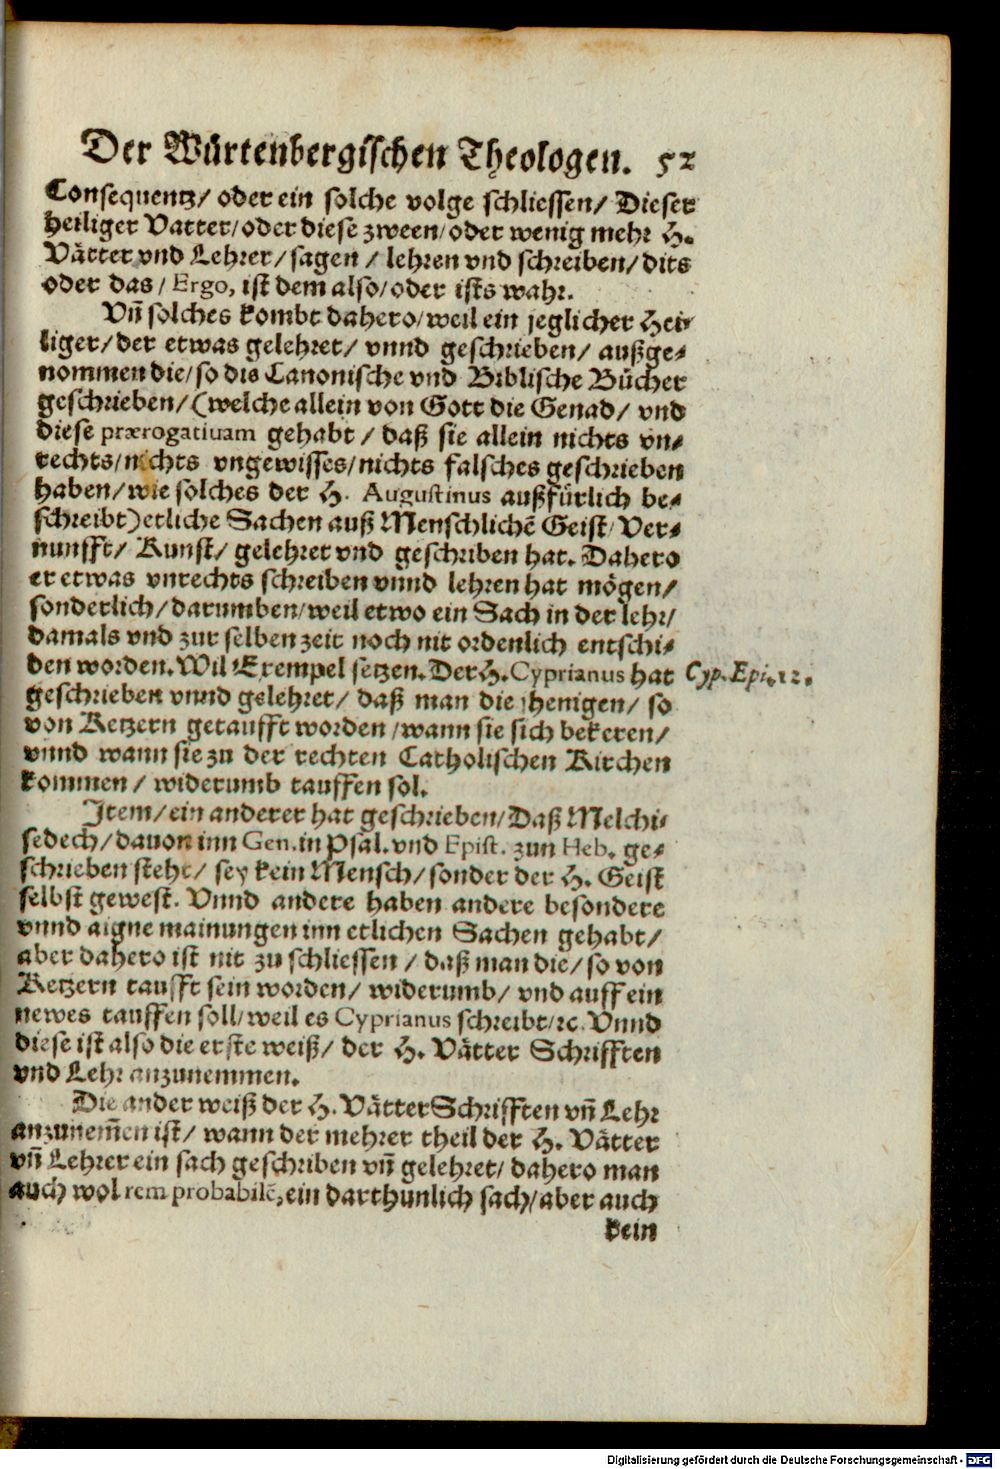 Der Würtenbergischen Theologen. 52
Consequentz/ oder ein solche volge schliessen/ Dieser
heiliger Vatter/ oder diese zween/ oder wenig mehr H.
Vätter vnd Lehrer/ sagen / lehren vnd schreiben/ dits
oder das/ Ergo, ist dem also/ oder ists wahr.
Vñ solches kombt dahero/ weil ein jeglicher Hei-
liger/ der etwas gelehret/ vnnd geschrieben/ außge-
nommen die/ so die Canonische vnd Biblische Bücher
geschrieben/ (welche allein von Gott die Genad/ vnd
diese prærogatiuam gehabt / daß sie allein nichts vn-
rechts/ nichts vngewisses/ nichts falsches geschrieben
haben/ wie solches der H. Augustinus außfürlich be-
schreibt) etliche Sachen auß Menschlichē Geist/ Ver-
nunfft/ Kunst/ gelehret vnd geschriben hat. Dahero
er etwas vnrechts schreiben vnnd lehren hat mögen/
sonderlich/ darumben/ weil etwo ein Sach in der lehr/
damals vnd zur selben zeit noch nit ordenlich entschi-
den worden. Wil Exempel setzen. Der H. Cyprianus hat
Cyp. Epi. 12.
geschrieben vnnd gelehret/ daß man die jhenigen/ so
von Ketzern getaufft worden / wann sie sich bekeren/
vnnd wann sie zu der rechten Catholischen Kirchen
kommen / widerumb tauffen sol.
Item/ ein anderer hat geschrieben/ Daß Melchi-
sedech/ dauon inn Gen. in Psal. vnd Epist. zun Heb. ge-
schrieben steht/ sey kein Mensch/ sonder der H. Geist
selbst gewest. Vnnd andere haben andere besondere
vnnd aigne mainungen inn etlichen Sachen gehabt/
aber dahero ist nit zu schliessen / daß man die/ so von
Ketzern taufft sein worden/ widerumb/ vnd auff ein
newes tauffen soll/ weil es Cyprianus schreibt/ ꝛc. Vnnd
diese ist also die erste weiß/ der H. Vätter Schrifften
vnd Lehr anzunemmen.
Die ander weiß der H. Vätter Schrifften vñ Lehr
anzunem̄en ist/ wann der mehrer theil der H. Vätter
vñ Lehrer ein sach geschriben vñ gelehret/ dahero man
auch wol rem probabilē, ein darthunlich sach/ aber auch
kein
Digitalisierung gefördert durch die Deutsche Forschungsgemeinschaft - DFG